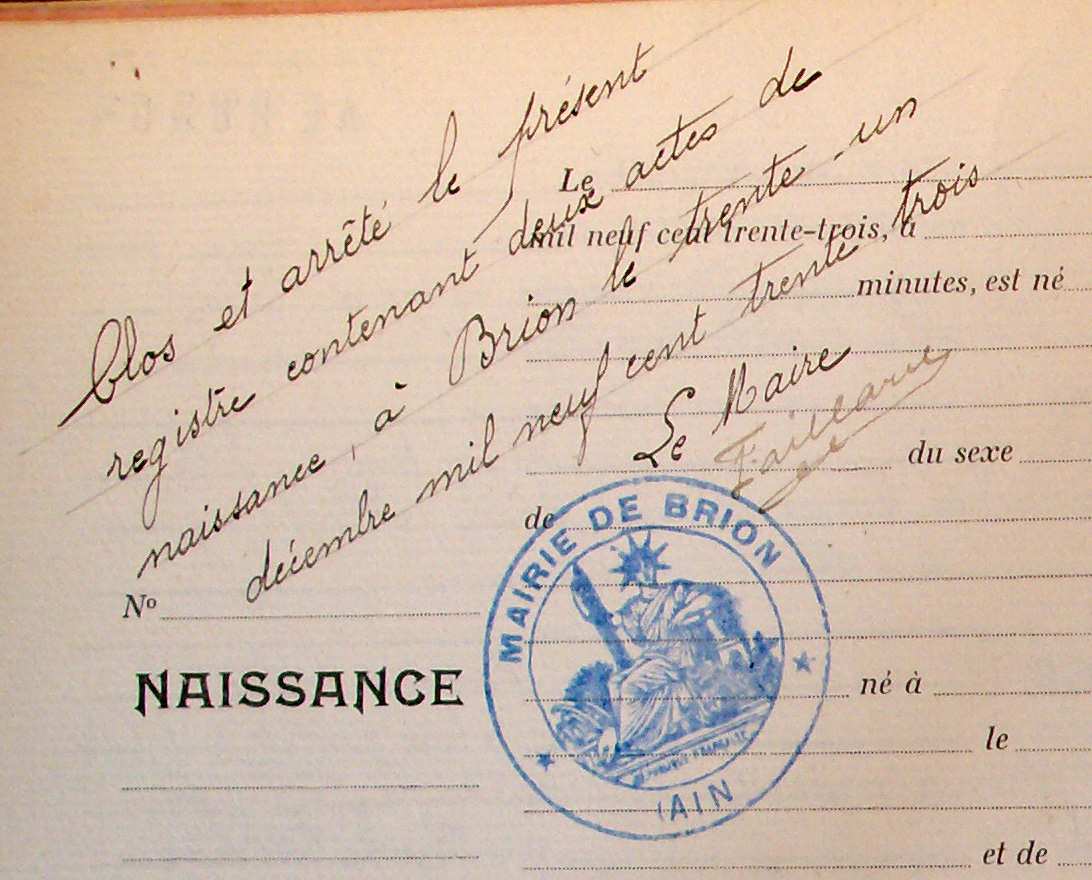 Clos et arrêté le présent
registre contenant deux actes de
naissance, à Brion le trente-un
décembre mil neuf cent trente trois
Le Maire
Le
mil neuf cent trente-trois, à
minutes, est né
du sexe
de
Nº
NAISSANCE
né à
le
et de
MAIRIE DE BRION
(AIN